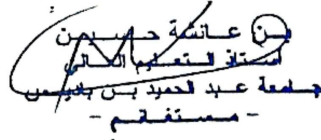 بن عائشة حسيمن
أستاذ التعليم العالي
جامعة عبد الحميد بن باديس
- مستغانم -